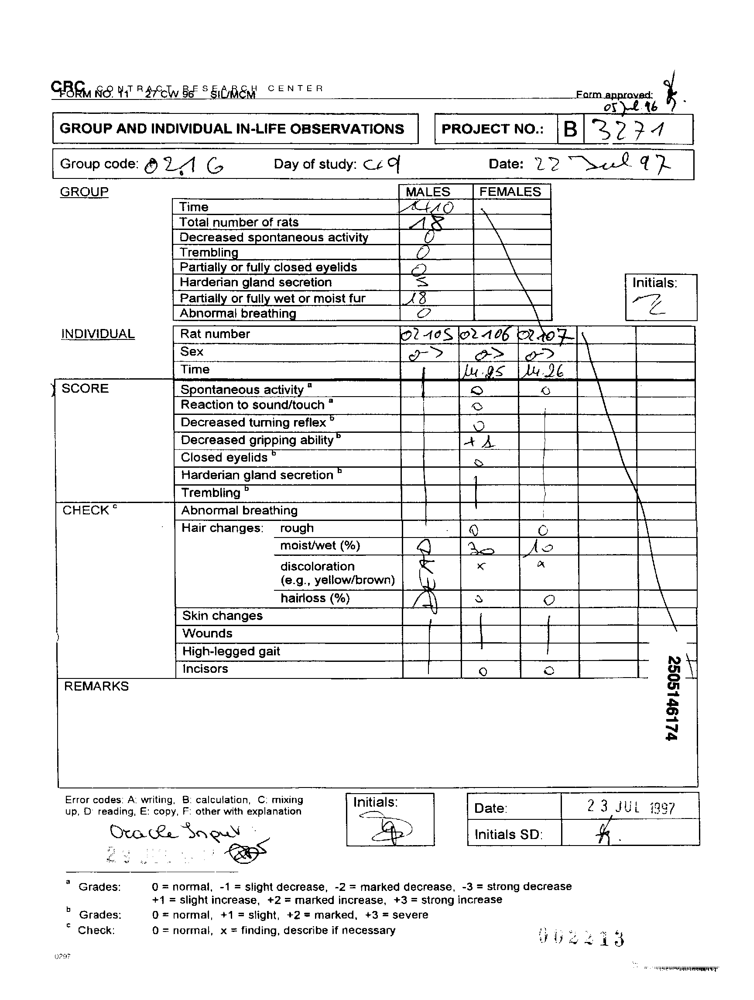 CRC CONTRACT RESEARCH CENTER
FORM NO. 11 27 CW 96 SIL/MCM
Form approved:
05 Jul 96
GROUP AND INDIVIDUAL IN-LIFE OBSERVATIONS PROJECT NO.: B 3271
Group code: 02.1 G Day of study: Date: 22 Jul 97
GROUP MALES FEMALES
Time 1410
Total number of rats 18
Decreased spontaneous activity 0
Trembling 0
Partially or fully closed eyelids 0
Harderian gland secretion
Partially or fully wet or moist fur 18
Abnormal breathing 0
Initials:
INDIVIDUAL Rat number 02105 02106 02107
Sex ♂ ♂ ♂
Time 14.25 14.26
SCORE Spontaneous activity a 0 0
Reaction to sound/touch a 0
Decreased turning reflex b 0
Decreased gripping ability b +1
Closed eyelids b 0
Harderian gland secretion b
Trembling b
CHECK c Abnormal breathing
Hair changes: rough 0 0
moist/wet (%) DEAD 30 10
discoloration x x
(e.g., yellow/brown)
hairloss (%) 0 0
Skin changes
Wounds
High-legged gait
Incisors 0 0
REMARKS
2505146174
Error codes: A: writing, B: calculation, C: mixing
up, D: reading, E: copy, F: other with explanation
Initials:
Date: 23 JUL 1997
Initials SD:
Oracle Input
a Grades: 0 = normal, -1 = slight decrease, -2 = marked decrease, -3 = strong decrease
+1 = slight increase, +2 = marked increase, +3 = strong increase
b Grades: 0 = normal, +1 = slight, +2 = marked, +3 = severe
c Check: 0 = normal, x = finding, describe if necessary
002213
0297